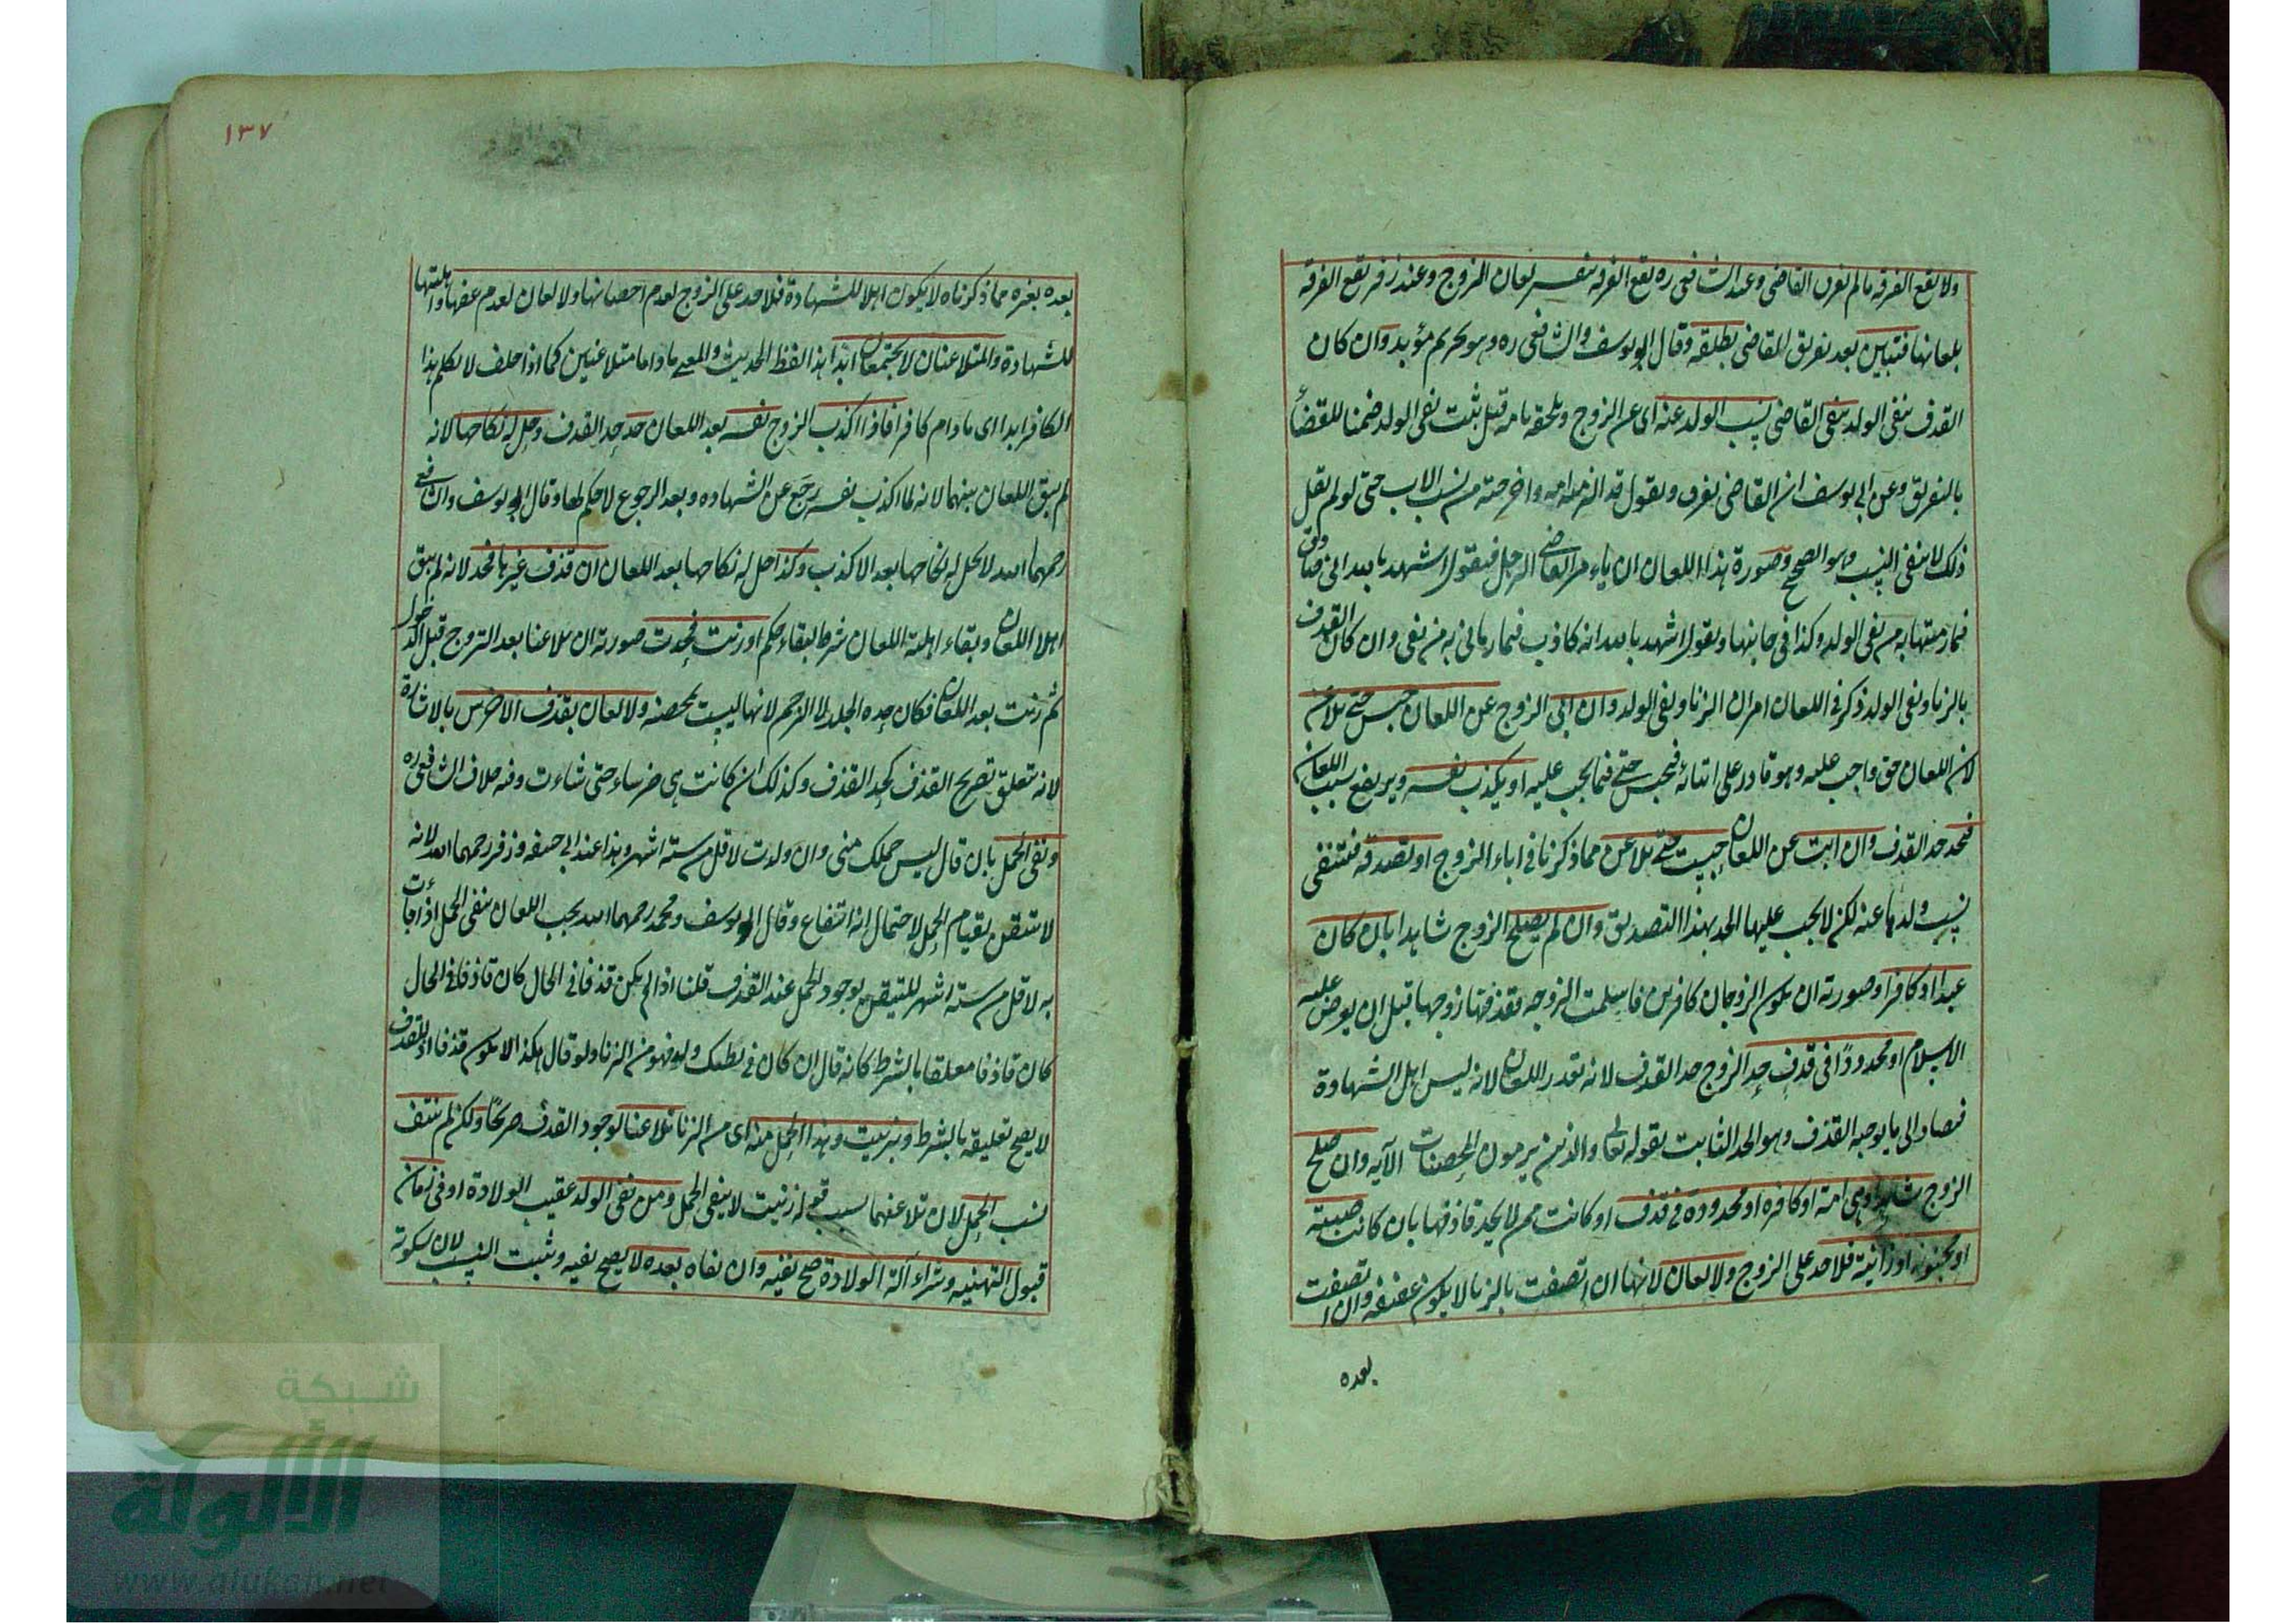 ولا تقع الفرقة ما لم يفرق القاضى وعند الشافعى ره تقع الفرقة بنفس لعان الزوج وعند زفر تقع الفرقة
بلعانها فتبين بعد تفريق القاضى بطلقة وقال ابو يوسف والشافعى ره وهو تحريم مؤبد وان كان
القذف بنفى الولد ينفى القاضى نسب الولد عنه اى عن الزوج ويلحقه بامه قيل يثبت نفى الولد ضمنا للقضاء
بالتفريق وعن ابى يوسف ان القاضى يفرق ويقول قد الزمته امه واخرجته من نسب الاب حتى لو لم يقل
ذلك لا ينتفى النسب وهو الصحيح وصورة هذا اللعان ان يامر القاضى الرجل فيقول اشهد بالله انى صادق
فيما رميتها به من نفى الولد وكذا فى جانبها وتقول اشهد بالله انه كاذب فيما رمانى به من نفى وان كان القذف
بالزنا ونفى الولد ذكر فى اللعان امران الزنا ونفى الولد وان ابى الزوج عن اللعان حبس حتى يلاعن
لان اللعان حق واجب عليه وهو قادر على ايتائه فيحبس حتى فيما يجب عليه او يكذب نفسه ويرتفع سبب اللعان
فيحد حد القذف وان ابت عن اللعان حبست حتى تلاعن مما ذكرنا فى اباء الزوج او تصدقه فينتفى
نسب ولدها عنه لكن لا يجب عليها الحد بهذا التصديق وان لم يصلح الزوج شاهدا بان كان
عبدا او كافرا وصورته ان يكون الزوجان كافرين فاسلمت الزوجة فقذفها زوجها قبل ان يعرض عليه
الاسلام او محدودا فى قذف حد الزوج حد القذف لانه تعذر اللعان لانه ليس اهل الشهادة
فيصار الى ما يوجبه القذف وهو الحد الثابت بقوله تعالى والذين يرمون المحصنات الآية وان صلح
الزوج شاهدا وهى امة او كافرة او محدودة فى قذف او كانت ممن لا يحد قاذفها بان كانت صبية
او مجنونة او زانية فلا حد على الزوج ولا لعان لانها ان اتصفت بالزنا لا يكون عفيفة وان اتصفت
بعده
١٣٧
بعده بغيره مما ذكرناه لا يكون اهلا للشهادة فلا حد على الزوج لعدم احصانها ولا لعان لعدم عفتها واهليتها
للشهادة والمتلاعنان لا يجتمعان ابدا هذا لفظ الحديث والمعنى ما داما متلاعنين كما اذا حلف لا يكلم هذا
الكافر ابدا اى ما دام كافرا فاذا اكذب الزوج نفسه بعد اللعان حد حد القذف وحل له نكاحها لانه
لم يبق اللعان بينهما لانه لما اكذب نفسه رجع عن الشهادة وبعد الرجوع لا حكم لها وقال ابو يوسف والشافعى
رحمهما الله لا يحل له نكاحها بعد الاكذاب وكذا حل له نكاحها بعد اللعان ان قذف غيرها فحد لانه لم يبق
اهلا اللعان وبقاء اهلية اللعان شرط لبقاء حكم او زنت فحدت صورته ان تلاعنا بعد التزوج قبل الدخول
ثم زنت بعد اللعان فكان حده الجلد لا الرجم لانها ليست بمحصنة ولا لعان بقذف الاخرس بالاشارة
لانه يتعلق بصريح القذف كحد القذف وكذلك ان كانت هى خرساء حتى شاءت وفيه خلاف الشافعى ره
ونفى الحمل بان قال ليس حملك منى وان ولدت لاقل من ستة اشهر وهذا عند ابى حنيفة وزفر رحمهما الله لانه
لا يتيقن بقيام الحمل لاحتمال انه انتفاخ وقال ابو يوسف ومحمد رحمهما الله يجب اللعان بنفى الحمل اذا جأت
به لاقل من ستة اشهر للتيقن بوجود الحمل عند القذف قلنا اذا لم يكن قذفا فى الحال كان قاذفا فى الحال
كان قاذفا معلقا بالشرط كانه قال ان كان فى بطنك ولد فهو من الزنا ولو قال هكذا لا يكون قذفا اذ القذف
لا يصح تعليقه بالشرط وبزنيت وهذا الحمل منه اى من الزنا تلاعنا لوجود القذف صريحا ولكن لم ينتف
نسب الحمل لان تلاعنهما بسبب قوله زنيت لا ينفى الحمل ومن نفى الولد عقيب الولادة او فى زمان
قبول التهنية وشراء آلة الولادة صح نفيه وان نفاه بعده لا يصح نفيه وثبت النسب لان سكوته
شبكة
الألوكة
www.alukah.net